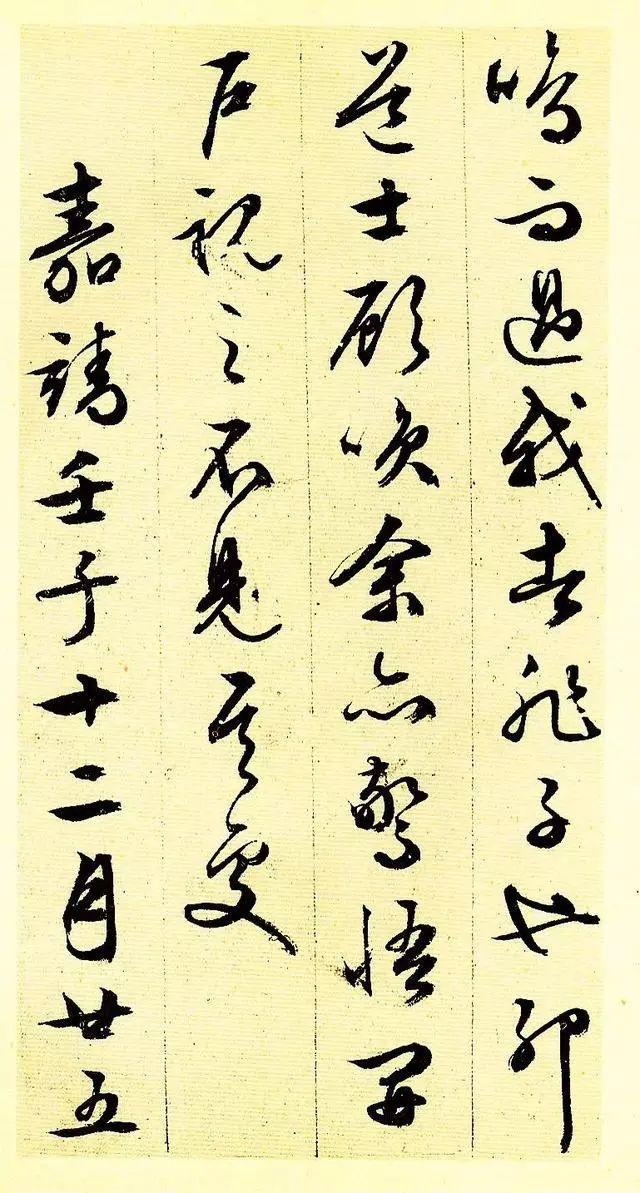 鳴而過我者非子也邪
道士顧咲余亦驚悟開
戶視之不見其處
嘉靖壬子十二月廿五